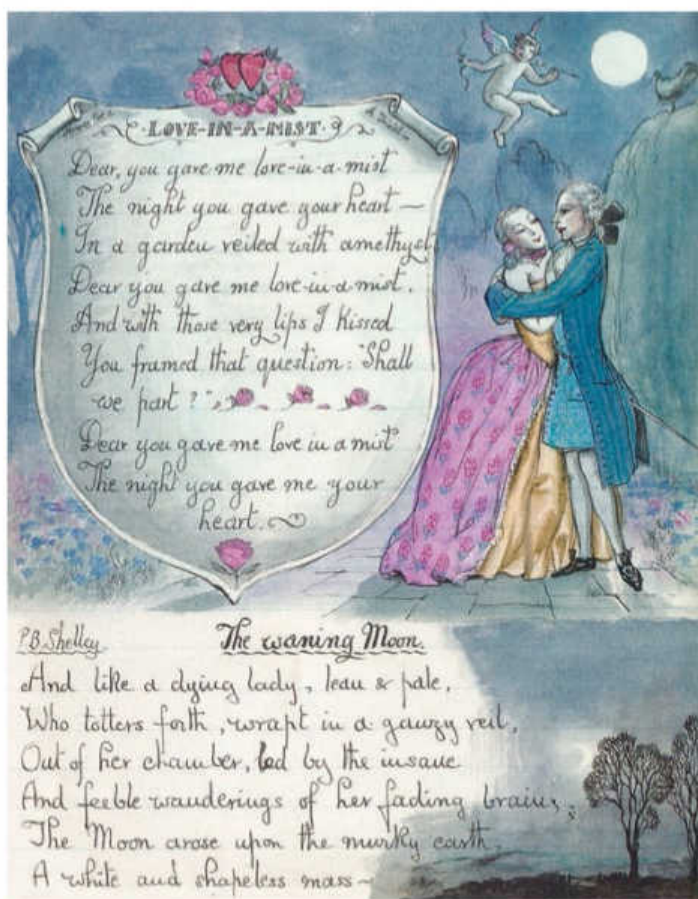 ·LOVE-IN-A-MIST·
Dear, you gave me love-in-a-mist
The night you gave your heart —
In a garden veiled with amethyst
Dear you gave me love-in-a-mist.
And with those very lips I kissed
You framed that question: "Shall
we part?"
Dear you gave me love in a mist
The night you gave me your
heart.
P.B. Shelley
The waning Moon.
And like a dying lady, lean & pale,
Who totters forth, wrapt in a gauzy veil,
Out of her chamber, led by the insane
And feeble wanderings of her fading brain,
The Moon arose upon the murky earth,
A white and shapeless mass —